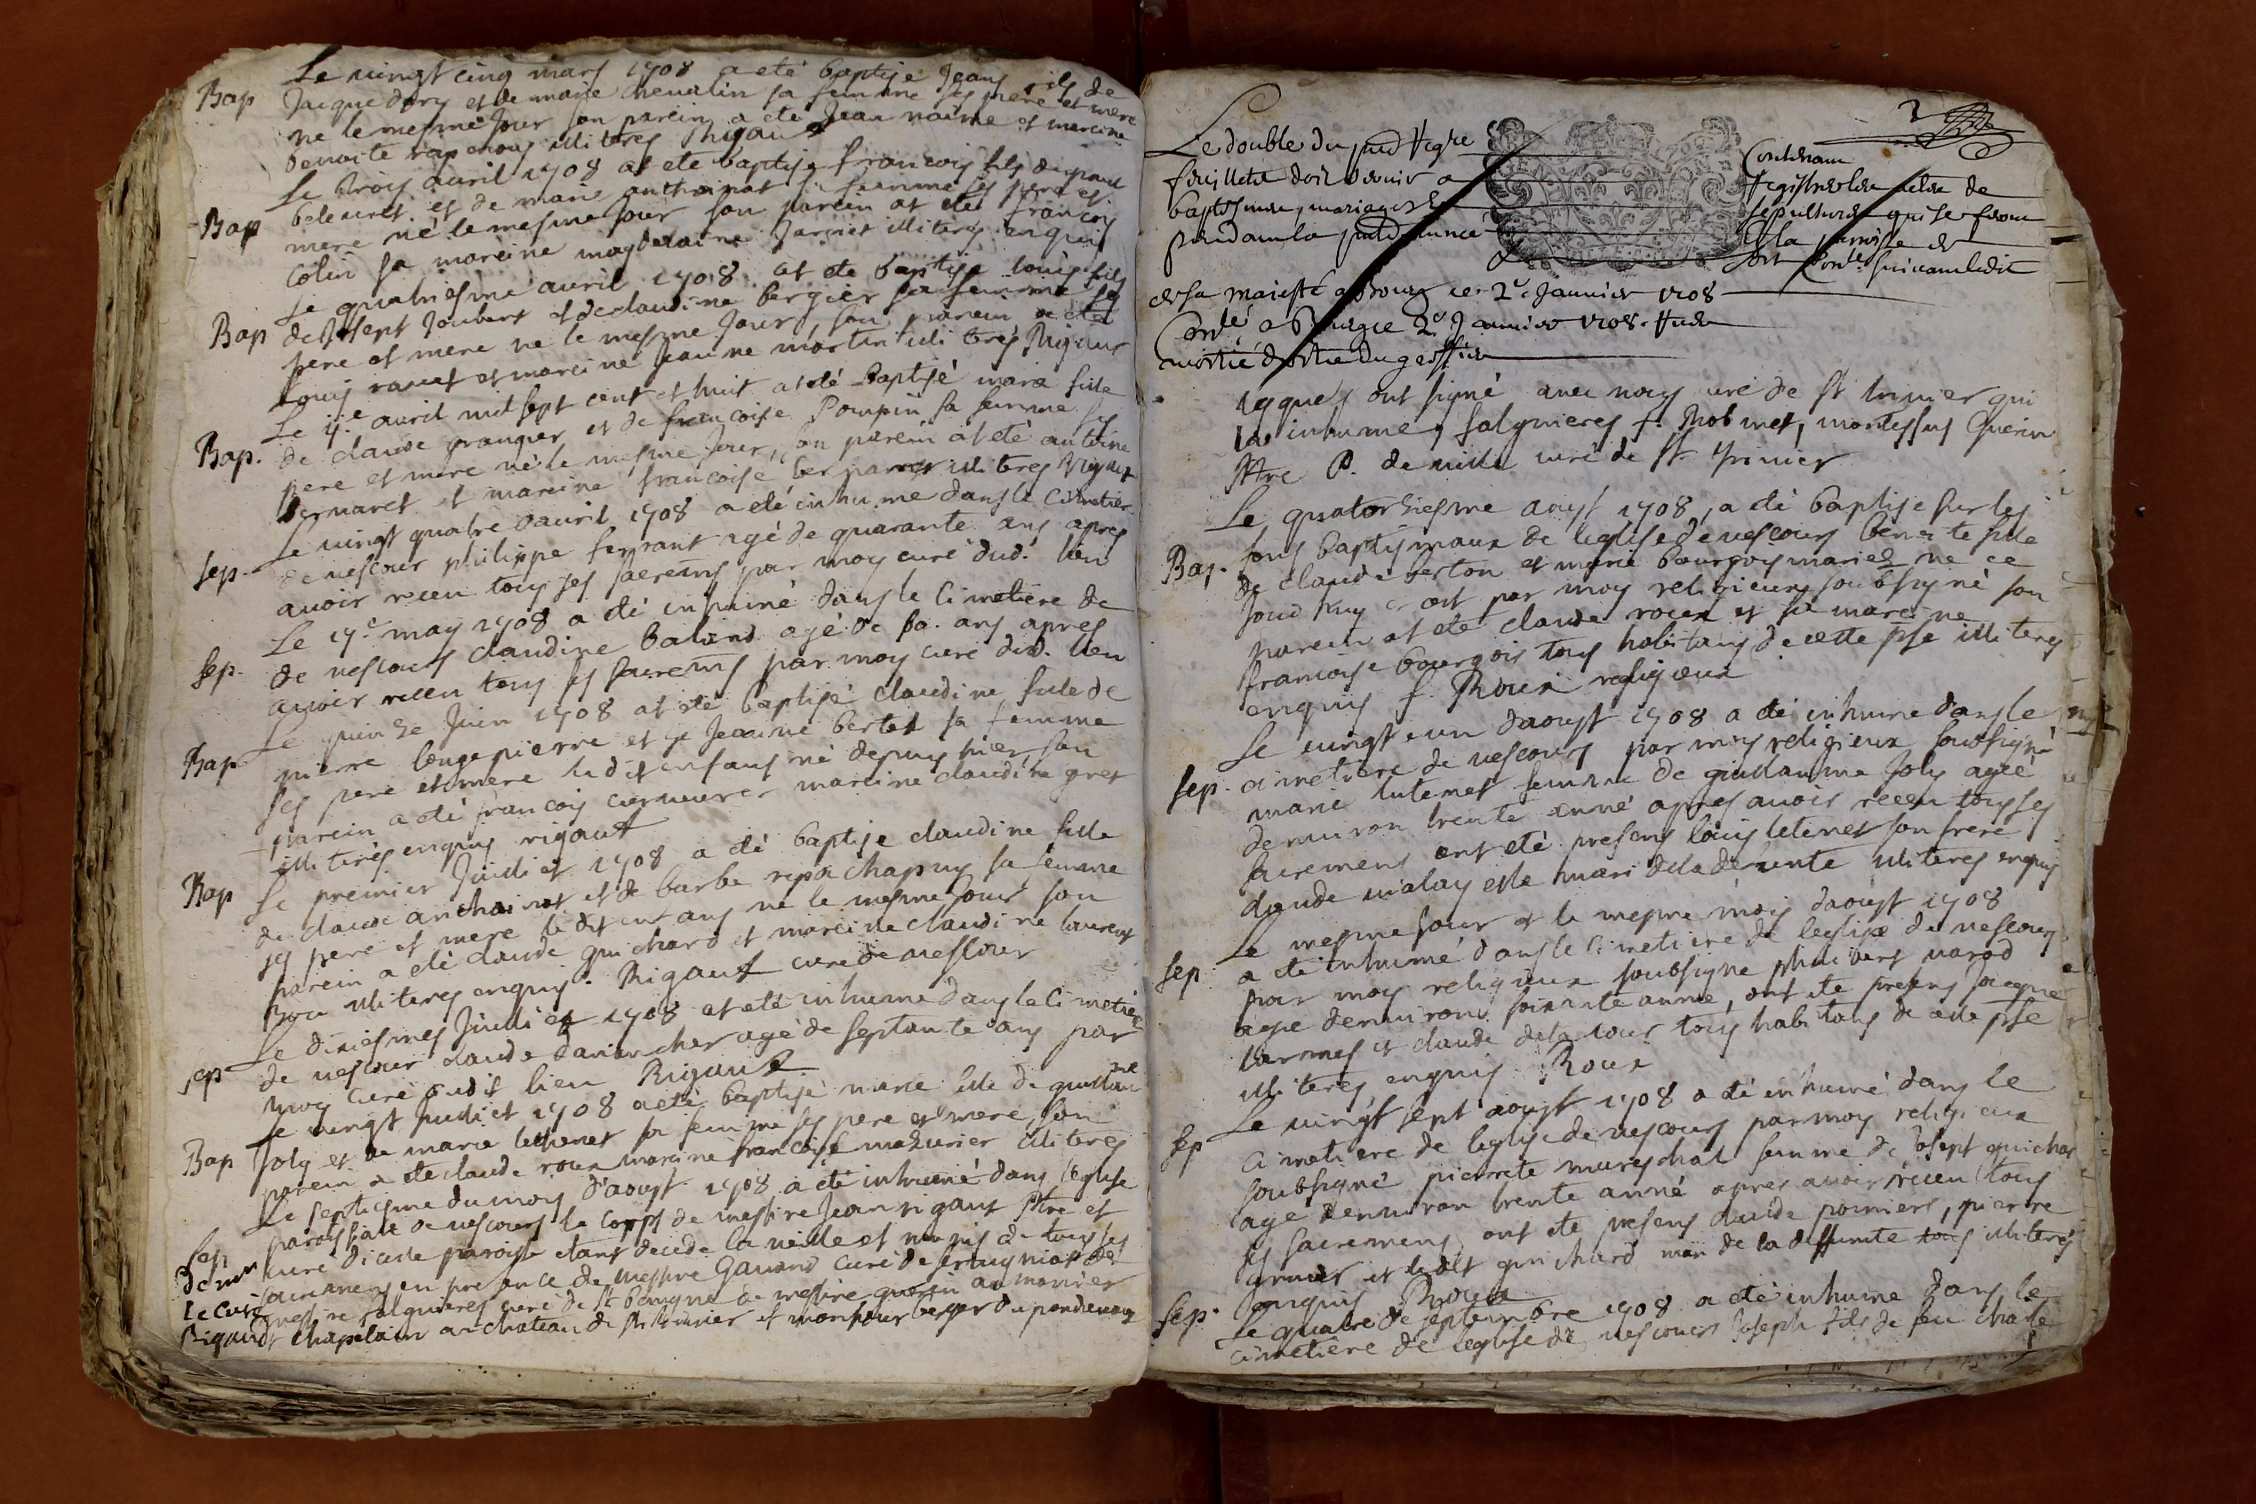 Bap Le vingt cinq mars 1708 a eté baptisé Jean fils de
Jacque dory et de marie chevalin sa femme ses pere et mere
né le mesme jour son parein a eté Jean naime et mareine
benoite illiteres Rigaut
Bap Le trois auril 1708 at ete baptisé francois fils de
et de marie anthoinat sa femme ses pere et
mere né le mesme jour son parein at eté francois
Colin sa mareine magdelaine Jarniet illiteres enquis
Bap Le quatriesme auril 1708 at ete baptisé louis fils
de Josept Joubert et de claudine bergier sa femme ses
pere et mere né le mesme jour, son parein a eté
louis ravet et mareine Jeanne martin illiterés Rigaut
Bap. Le auril mil sept cent et huit at eté Baptisé marie fille
de claude granger et de francoise Poupin sa femme ses
pere et mere né le mesme jour, son parein at eté antoine
bernaret et mareine francoise illiteres Rigaut
sep. Le vingt quatre dauril 1708 a eté inhumé dans le Cimetier
de vescour philippe ferrant agé de quarante ans apres
auoir receu tous ses sacrems par moy curé dud. lieu
sep. Le may 1708 a eté inhumé dans le Cimetiere de
de vescours claudine baland agé de ans apres
auoir receu tous ses sacrems par moy curé dud. lieu
Bap Le quinze Juin 1708 at eté baptisé claudine fille de
pierre longepierre et de Jeanne bertet sa femme
ses pere et mere le dit enfant né depuis hier son
parein a eté francois mareine claudine gret
illiterés enquis rigaut
Bap Le premier Juillet 1708 a eté baptisé claudine fille
de claude anthoinat et de barbe chapuy sa femme
ses pere et mere le dit enfans né le mesme jour son
parein a eté claude guichard et mareine claudine laurent
illiteres enquis. Rigaut curé de vescour
sep Le dixiesmes Juillet 1708 at eté inhumé dans le Cimetiere
de vescour claude agé de septante ans par
moy curé dudit lieu Rigaut
Bap Le vingt Juillet 1708 a eté baptisé marie fille de guillaume
Joly et de marie lethenet sa femme ses pere et mere, son
parein a ete claude roux mareine francoise mazurier illiteres
sep de mr le curé Rigaudt Le septiesme du mois d'aoust 1708 a été inhumé dans l'eglise
paroissiale de vescours le corps de messire Jean rigaut Ptre et
curé dicelle paroisse etant decedé la veille et munis de tous ses
sacremens en presence de messire Gauand curé de
messire salgnieres curé de St benigne de messire guerin aumonier
chapelain au chateau de et monsieur berger du pondevaux
2
Le double du pnt Regre
feuillets doit servir a
baptesmes, mariages et
pendant la pnte année
Contenant
registre des actes de
sepultures qui se feront
en la parroisse de
suivant ledit
de sa majesté a Bourg ce 2e Januier 1708
Contlé a Bourg ce 2e Januier 1708.
moitié droits du greffier
lesquels ont signé auec nous curé de St trivier qui
la inhumé, salgnieres f. Robinet, montessus Guerin
Ptre P. de ville curé de St. Trivier
Bap. Le quatorziesme aoust 1708, a eté baptisé sur les
fons baptismaux de leglise de vescours benoite fille
de claude berton et marie bourgois mariez né ce
jourdhuy et ont par moy religieux soubsigné son
parein at eté claude roux et sa mareine
francoise bourgois tous habitans de cette psse illiteres
enquis f. Roux religieux
sep. Le vingt un daoust 1708 a eté inhumé dans le
cimetiere de vescours par moy religieux soubsigné
marie lutenet femme de guillaume Joly agée
denviron trente anné apres auoir receu tous ses
sacremens ont eté presens louis letenet son frere
claude vialay et le mari de la defunte illiteres enquis
sep. Le mesme jour et le mesme mois daoust 1708
a eté inhumé dans le cimetiere de leglise de vescours
par moy religieux soubsigné philibert varod
agé denviron soixante anné, ont eté presens Jacque
larmes et claude dela cour tous habitans de cette psse
illiteres enquis Roux
sep Le vingt sept aoust 1708 a eté inhumé dans le
cimetiere de leglise de vescours par moy religieux
soubsigné pierrete mareschal femme de Josept guichar
agé denviron trente anné apres auoir receu tous
ses sacremens ont eté presens claude pomiers, pierre
et ledit guichard mari de la deffunte tous illiterés
enquis Roux
sep. Le quatre de septembre 1708 a eté inhumé dans le
cimetiere de leglise de vescours Joseph fils de feu charle